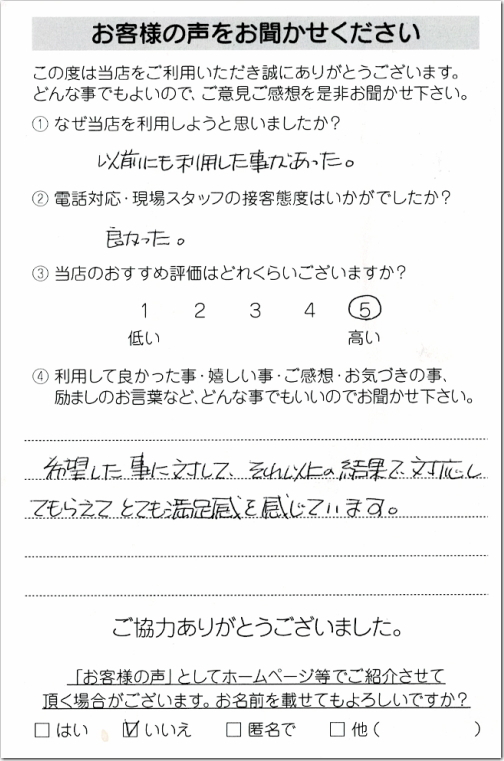 お客様の声をお聞かせください
この度は当店をご利用いただき誠にありがとうございます。
どんな事でもよいので、ご意見ご感想を是非お聞かせ下さい。
① なぜ当店を利用しようと思いましたか？
以前にも利用した事があった。
② 電話対応・現場スタッフの接客態度はいかがでしたか？
良かった。
③ 当店のおすすめ評価はどれくらいございますか？
1 2 3 4 5
低い 高い
④ 利用して良かった事・嬉しい事・ご感想・お気づきの事、
励ましのお言葉など、どんな事でもいいのでお聞かせ下さい。
希望した事に対して、それ以上の結果で対応し
てもらえてとても満足感を感じています。
ご協力ありがとうございました。
「お客様の声」としてホームページ等でご紹介させて
頂く場合がございます。お名前を載せてもよろしいですか？
□ はい ☑ いいえ □ 匿名で □ 他（ ）